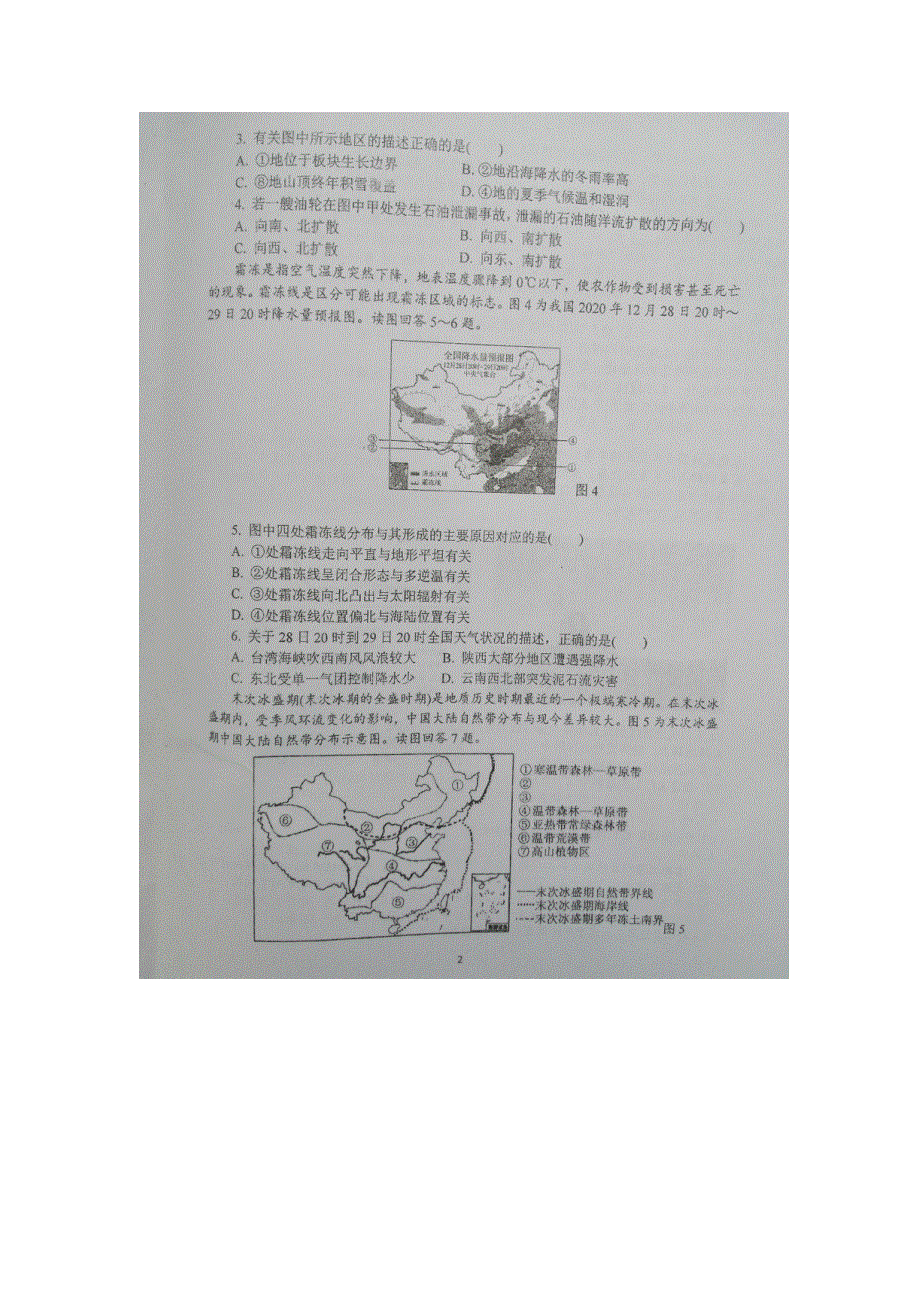 3. 有关图中所示地区的描述正确的是(　　)
A. ①地位于板块生长边界　　B. ②地沿海降水的冬雨率高
C. ⑧地山顶终年积雪覆盖　　D. ④地的夏季气候温和湿润
4. 若一艘油轮在图中甲处发生石油泄漏事故，泄漏的石油随洋流扩散的方向为(　　)
A. 向南、北扩散　　B. 向西、南扩散
C. 向西、北扩散　　D. 向东、南扩散
霜冻是指空气温度突然下降，地表温度骤降到0℃以下，使农作物受到损害甚至死亡
的现象。霜冻线是区分可能出现霜冻区域的标志。图4为我国2020年12月28日20时～
29日20时降水量预报图。读图回答5～6题。
全国降水量预报图
12月28日20时-29日20时
中央气象台
③
②
④
①
降水区域
霜冻线
图4
5. 图中四处霜冻线分布与其形成的主要原因对应的是(　　)
A. ①处霜冻线走向平直与地形平坦有关
B. ②处霜冻线呈闭合形态与多逆温有关
C. ③处霜冻线向北凸出与太阳辐射有关
D. ④处霜冻线位置偏北与海陆位置有关
6. 关于28日20时到29日20时全国天气状况的描述，正确的是(　　)
A. 台湾海峡吹西南风风浪较大　　B. 陕西大部分地区遭遇强降水
C. 东北受单一气团控制降水少　　D. 云南西北部突发泥石流灾害
末次冰盛期(末次冰期的全盛时期)是地质历史时期最近的一个极端寒冷期。在末次冰
盛期内，受季风环流变化的影响，中国大陆自然带分布与现今差异较大。图5为末次冰盛
期中国大陆自然带分布示意图。读图回答7题。
①
⑥
②
③
⑦
④
⑤
①寒温带森林—草原带
②
③
④温带森林—草原带
⑤亚热带常绿森林带
⑥温带荒漠带
⑦高山植物区
末次冰盛期自然带界线
末次冰盛期海岸线
末次冰盛期多年冻土南界
图5
2